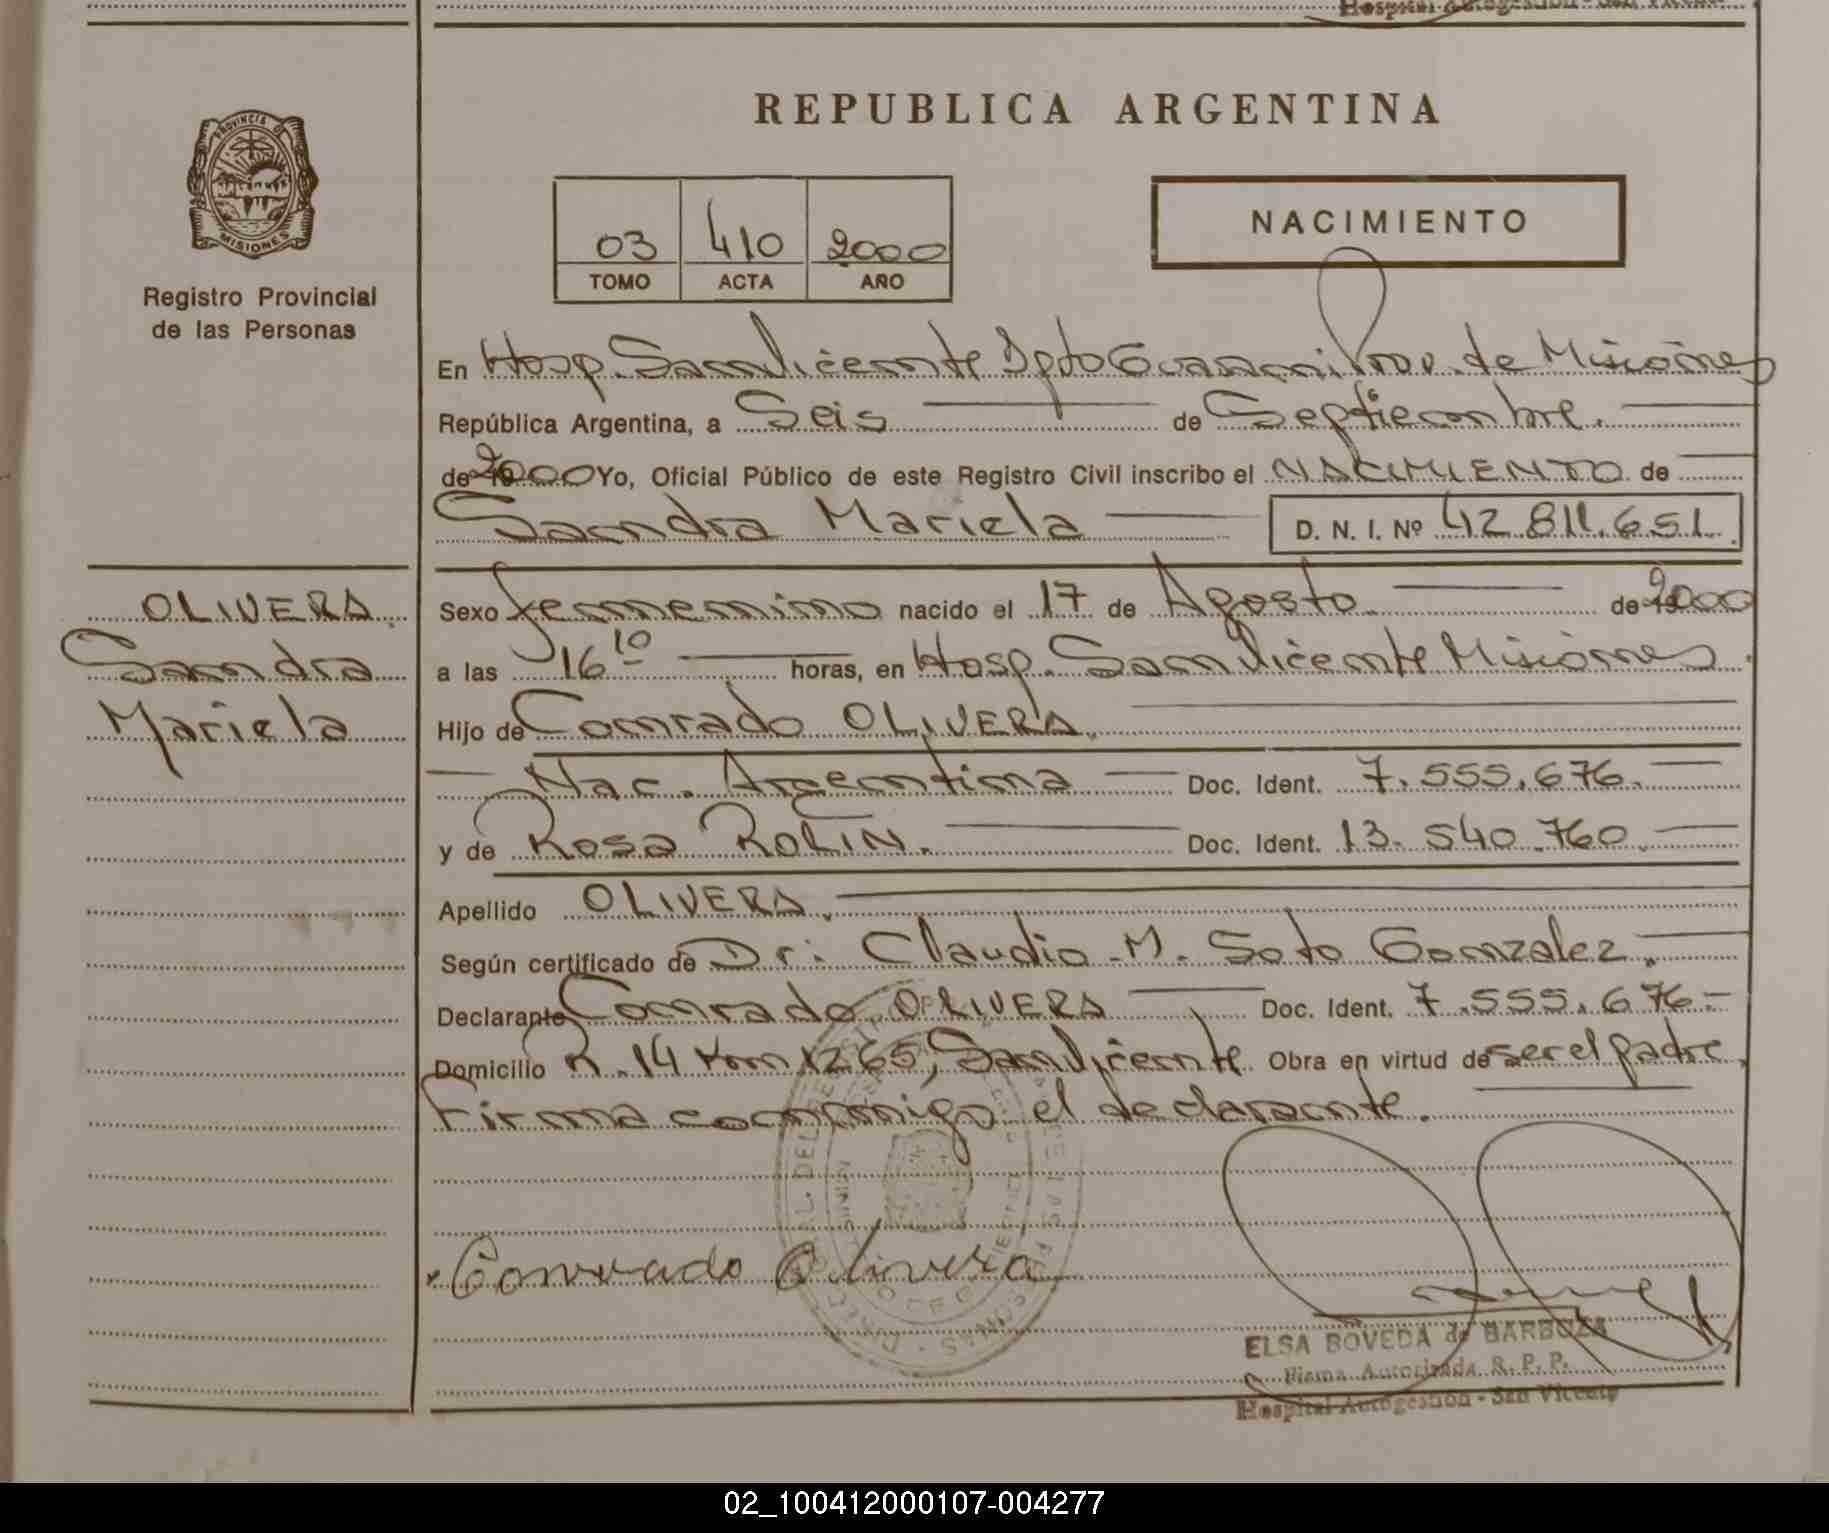 Hospital Autogestion - San Vicente
REPUBLICA ARGENTINA
PROVINCIA D
MISIONES
Registro Provincial
de las Personas
03 410 2000
TOMO ACTA AÑO
NACIMIENTO
En Hosp. San Vicente Dpto Guarani Prov. de Misiones
República Argentina, a Seis de Septiembre.
de 2000 Yo, Oficial Público de este Registro Civil inscribo el NACIMIENTO de
Sandra Mariela D. N. I. Nº 42.811.651.
OLIVERA
Sandra
Mariela
Sexo femenino nacido el 17 de Agosto de 2000
a las 16 10 horas, en Hosp. San Vicente Misiones.
Hijo de Conrado OLIVERA.
Nac. Argentina Doc. Ident. 7.555.676.
y de Rosa ROLIN. Doc. Ident. 13.540.760.
Apellido OLIVERA.
Según certificado de Dr: Claudio M. Soto Gonzalez.
Declarante Conrado OLIVERA Doc. Ident. 7.555.676.-
Domicilio R. 14 Km 1265, San Vicente. Obra en virtud de ser el padre.
Firma conmigo el declarante.
Conrado Olivera
ELSA BOVEDA de BARBOZA
Firma Autorizada R. P. P.
Hospital Autogestion - San Vicente
02_100412000107-004277